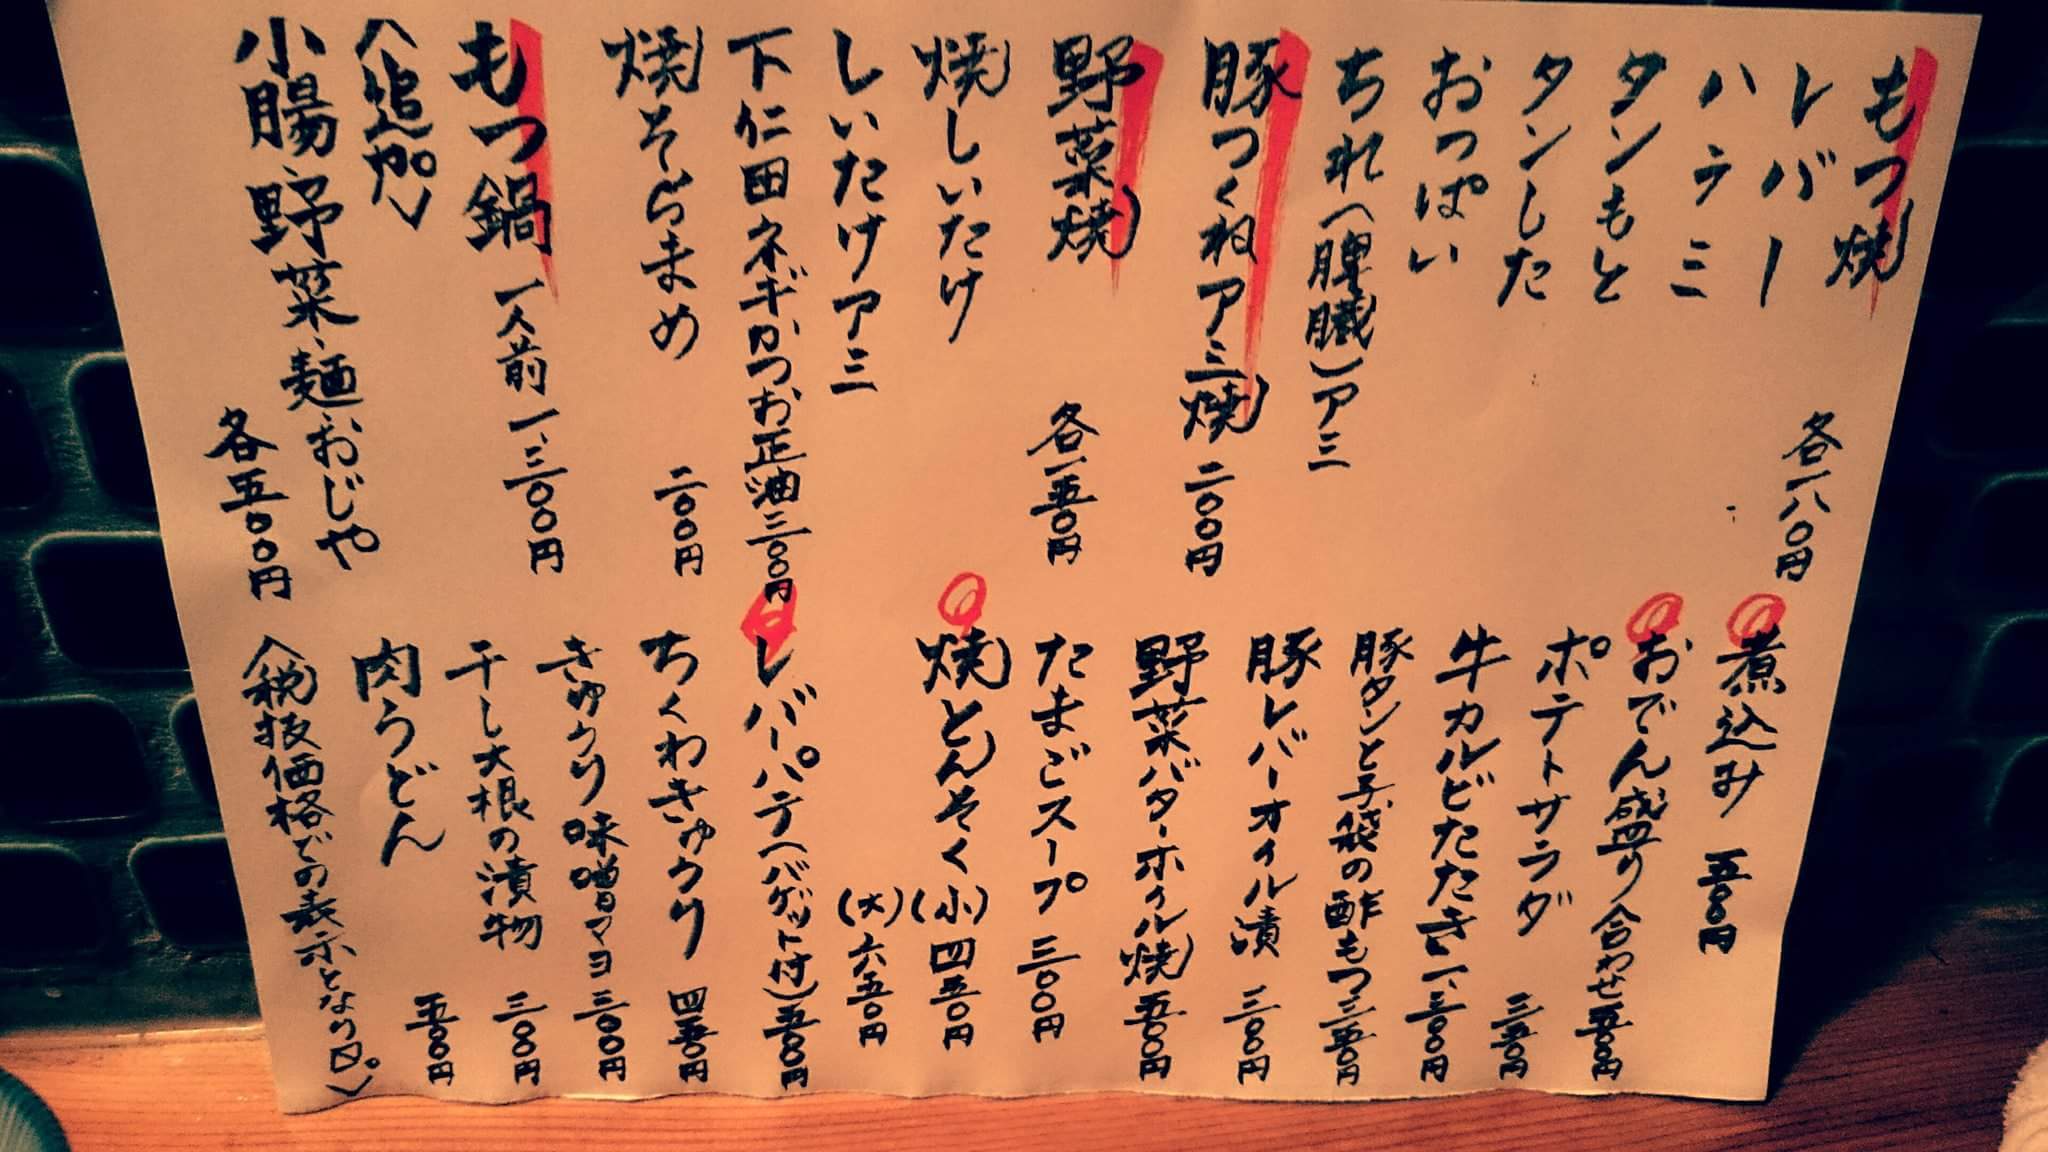 もつ焼
レバー
ハラミ
タンもと
タンした
おっぱい
ちれ(脾臓)アミ
各一八〇円
豚つくねアミ焼 二〇〇円
野菜焼
焼しいたけ
しいたけアミ
各一五〇円
下仁田ネギかつお正油 三〇〇円
焼そらまめ 二〇〇円
もつ鍋 一人前 一、三〇〇円
〈追加〉
小腸・野菜・麺・おじや
各五〇〇円
煮込み 五〇〇円
おでん盛り合わせ 五五〇円
ポテトサラダ 三五〇円
牛カルビたたき 一、三〇〇円
豚タンと子袋の酢もつ 三五〇円
豚レバーオイル漬 三〇〇円
野菜バターホイル焼 五〇〇円
たまごスープ 三〇〇円
焼とんそく (小) 四五〇円
(大) 六五〇円
レバーパテ(バゲット付) 五〇〇円
ちくわきゅうり 四五〇円
きゅうり味噌マヨ 三〇〇円
干し大根の漬物 三〇〇円
肉うどん 五〇〇円
〈税抜価格での表示となり〼。〉